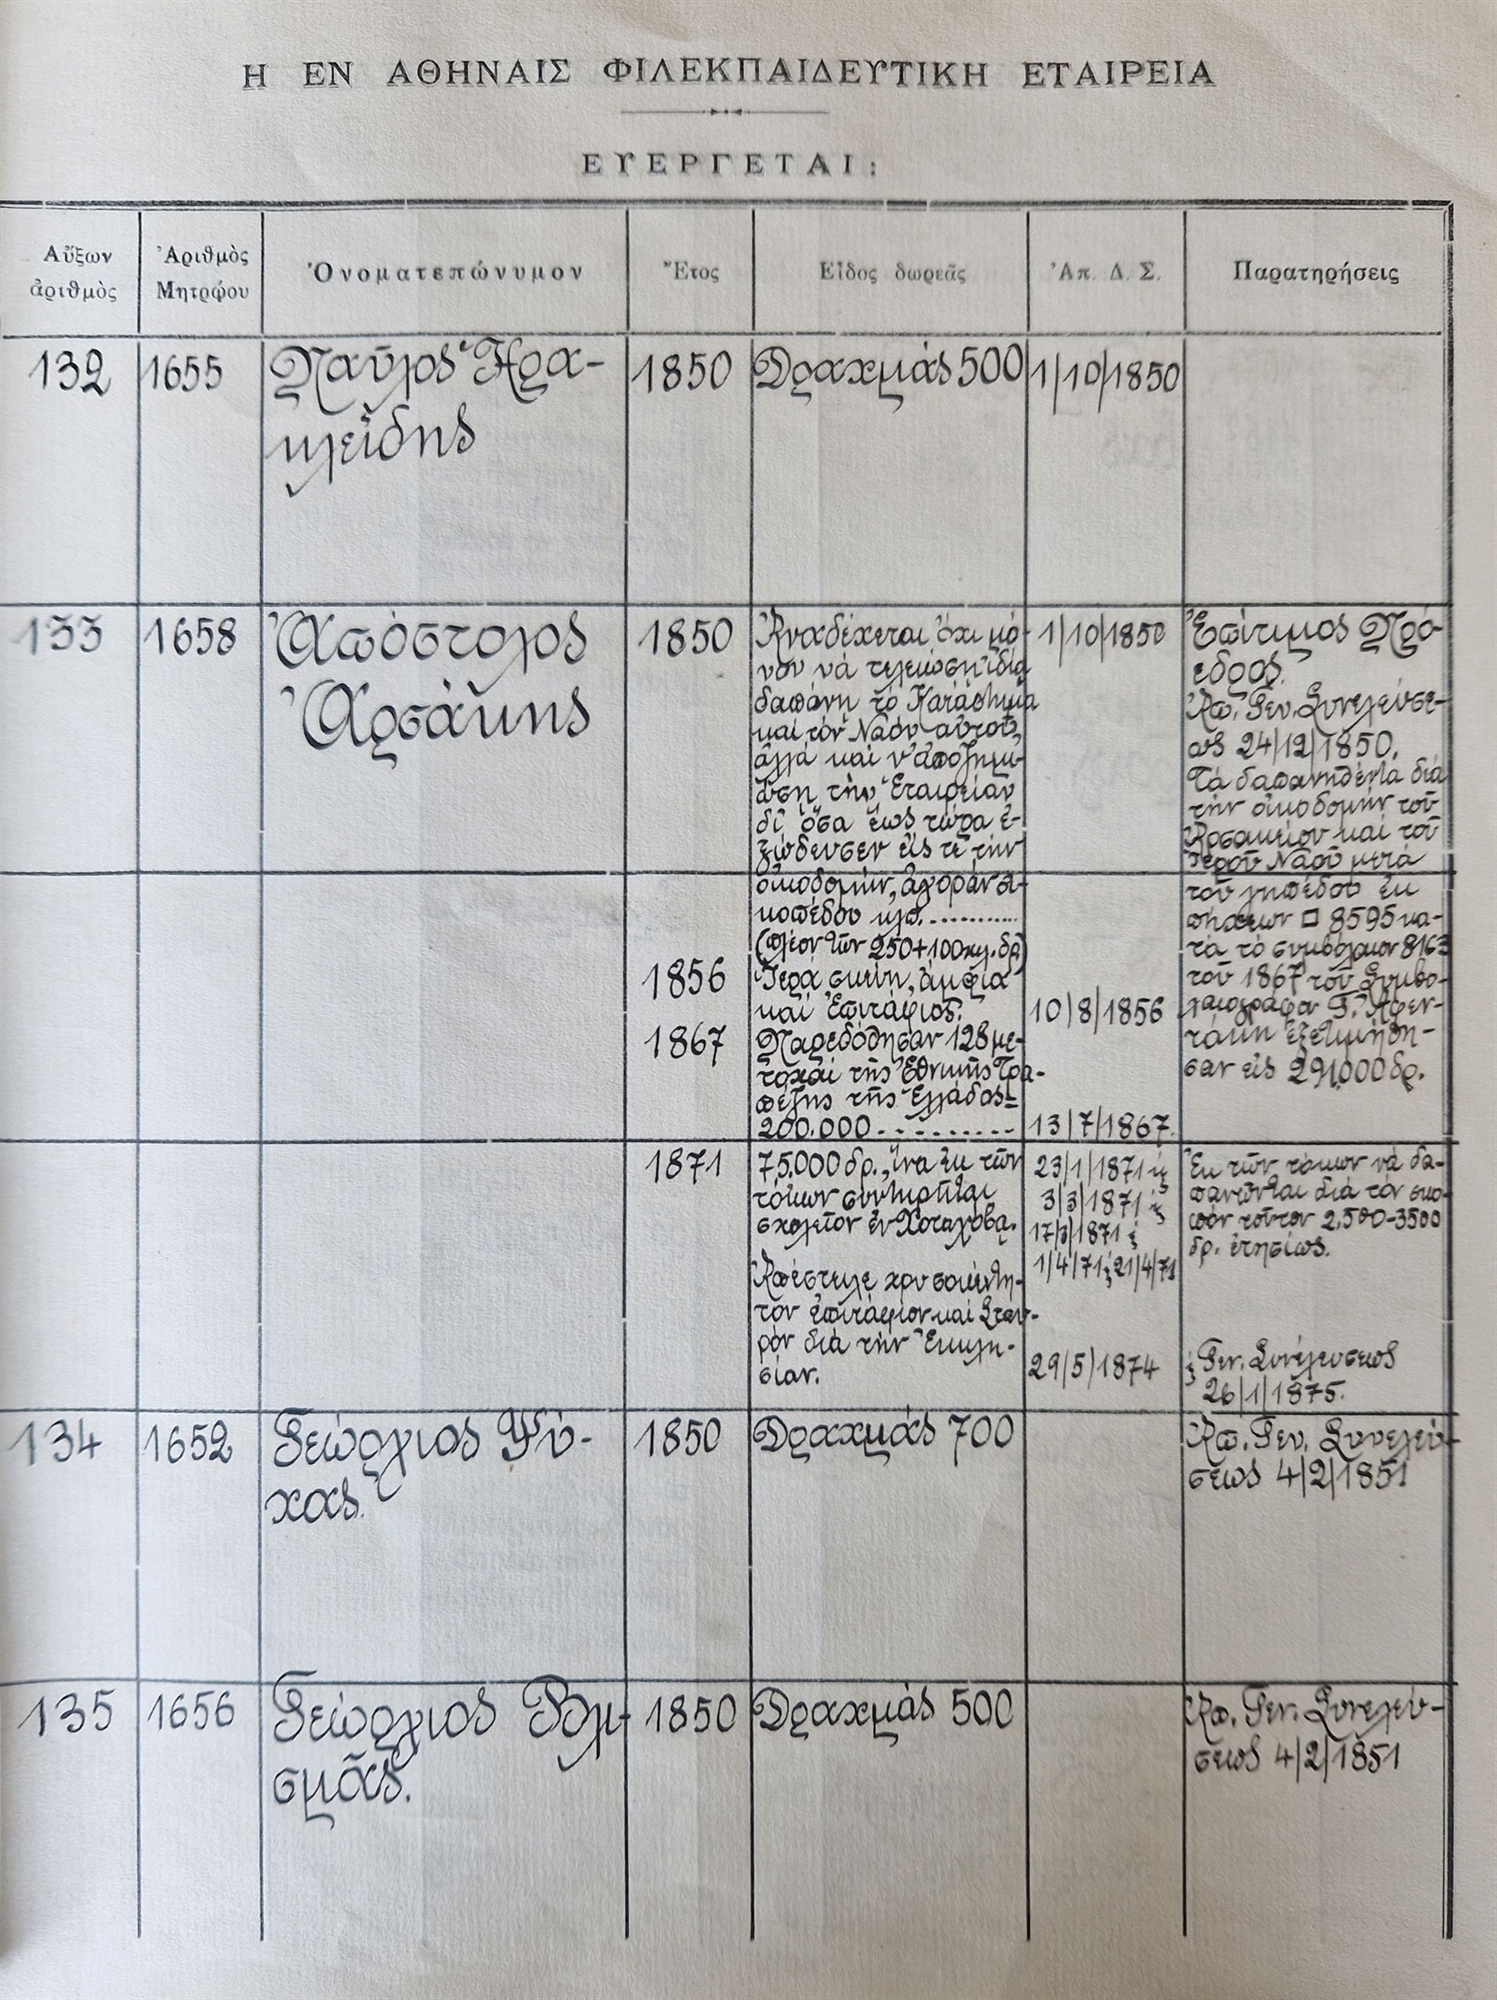 Η ΕΝ ΑΘΗΝΑΙΣ ΦΙΛΕΚΠΑΙΔΕΥΤΙΚΗ ΕΤΑΙΡΕΙΑ
ΕΥΕΡΓΕΤΑΙ:
Αὔξων ἀριθμὸς
Ἀριθμὸς Μητρῴου
Ὀνοματεπώνυμον
Ἔτος
Εἶδος δωρεᾶς
Ἀπ. Δ. Σ.
Παρατηρήσεις
132
1655
Παῦλος Ἡρα-
κλείδης
1850
Δραχμάς 500
1/10/1850
133
1658
Ἀπόστολος
Ἀρσάκης
1850
Ἀναδέχεται ὄχι μό-
νον νά τελειώση ἰδίᾳ
δαπάνῃ τό Κατάστημα
καί τόν Ναόν αὐτοῦ,
ἀλλά καί ν' ἀποζημι-
ώση τήν Ἑταιρείαν
δι' ὅσα ἕως τώρα ἐ-
ξώδευσεν εἰς τε τήν
οἰκοδομήν, ἀγοράν οἰ-
κοπέδου κλπ...........
(πλέον τῶν 250+100 χιλ. δρ)
1/10/1850
Ἐπίτιμος Πρό-
εδρος.
Ἀπ. Γεν. Συνελεύσε-
ως 24/12/1850.
Τά δαπανηθέντα διά
τήν οἰκοδομήν τοῦ
Ἀρσακείου καί τοῦ
Ἱεροῦ Ναοῦ μετά
τοῦ γηπέδου ἐκ
πήχεων □ 8595 κα-
τά τό συμβόλαιον 8163
τοῦ 1867 τοῦ Συμβο-
λαιογράφου Γ. Ἀφεν-
τάκη ἐξετιμήθη-
σαν εἰς 291.000 δρ.
1856
Ἱερά σκεύη, ἄμφια
καί Ἐπιτάφιος.
10/8/1856
1867
Παρεδόθησαν 128 με-
τοχαί τῆς Ἐθνικῆς Τρα-
πέζης τῆς Ἑλλάδος=
200.000.........
13/7/1867
1871
75.000 δρ., ἵνα ἐκ τῶν
τόκων συντηρῆται
σχολεῖον ἐν Χοταχόβᾳ.
23/1/1871 ἐ
3/3/1871 ἐ
17/3/1871 ἐ
1/4/71 ἐ 21/4/71
Ἐκ τῶν τόκων νά δα-
πανῶνται διά τόν σκο-
πόν τοῦτον 2.500-3500
δρ. ἐτησίως.
Ἀπέστειλε χρυσοκέντη-
τον ἐπιτάφιον καί Σταυ-
ρόν διά τήν Ἐκκλη-
σίαν.
29/5/1874
ἐ Γεν. Συνέλευσεως
26/1/1875.
134
1652
Γεώργιος Ψύ-
χας.
1850
Δραχμάς 700
Ἀπ. Γεν. Συνελεύ-
σεως 4/2/1851
135
1656
Γεώργιος Βλι-
σμᾶς.
1850
Δραχμάς 500
Ἀπ. Γεν. Συνελεύ-
σεως 4/2/1851